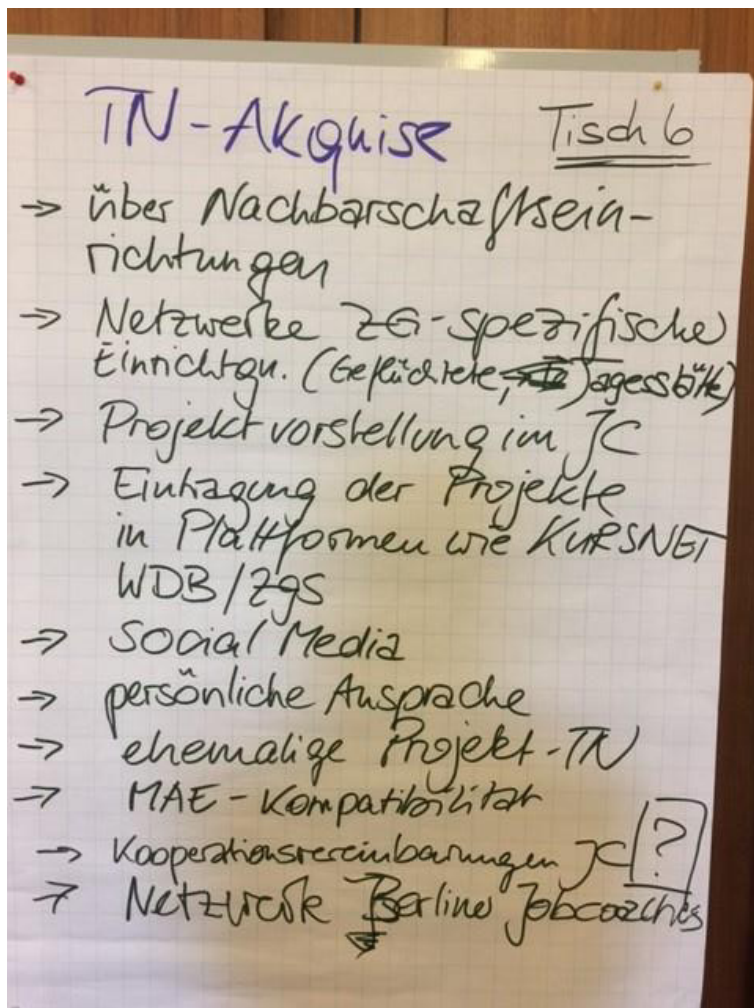 TN-Akquise Tisch 6
→ über Nachbarschaftsein-
richtungen
→ Netzwerke ZG-spezifische
Einrichtgn. (Geflüchtete, Tagesstätte)
→ Projektvorstellung im JC
→ Eintragung der Projekte
in Plattformen wie KURSNET
WDB/zgs
→ Social Media
→ persönliche Ansprache
→ ehemalige Projekt-TN
→ MAE-Kompatibilität
→ Kooperationsvereinbarungen JC ?
→ Netzwerk Berliner Jobcoaches